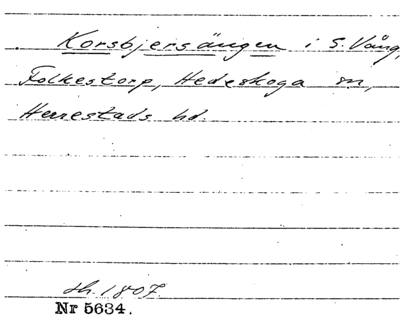 Korsbjersängen i S. Vång,
Folkestorp, Hedeskoga sn,
Herrestads hd.
sh. 1807.
Nr 5634.